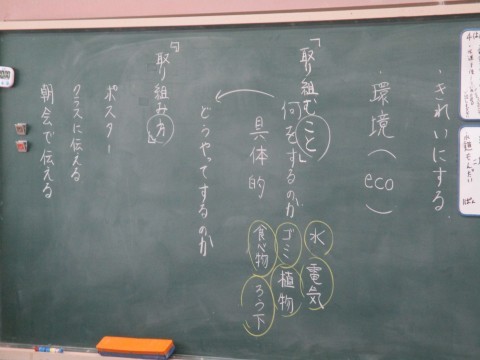 ・きれいにする
・環境(eco)
「取り組むこと」
何をするのか
具体的
水
電気
ゴミ
植物
食べ物
ろう下
どうやってするのか
「取り組み方」
ポスター
クラスに伝える
朝会で伝える